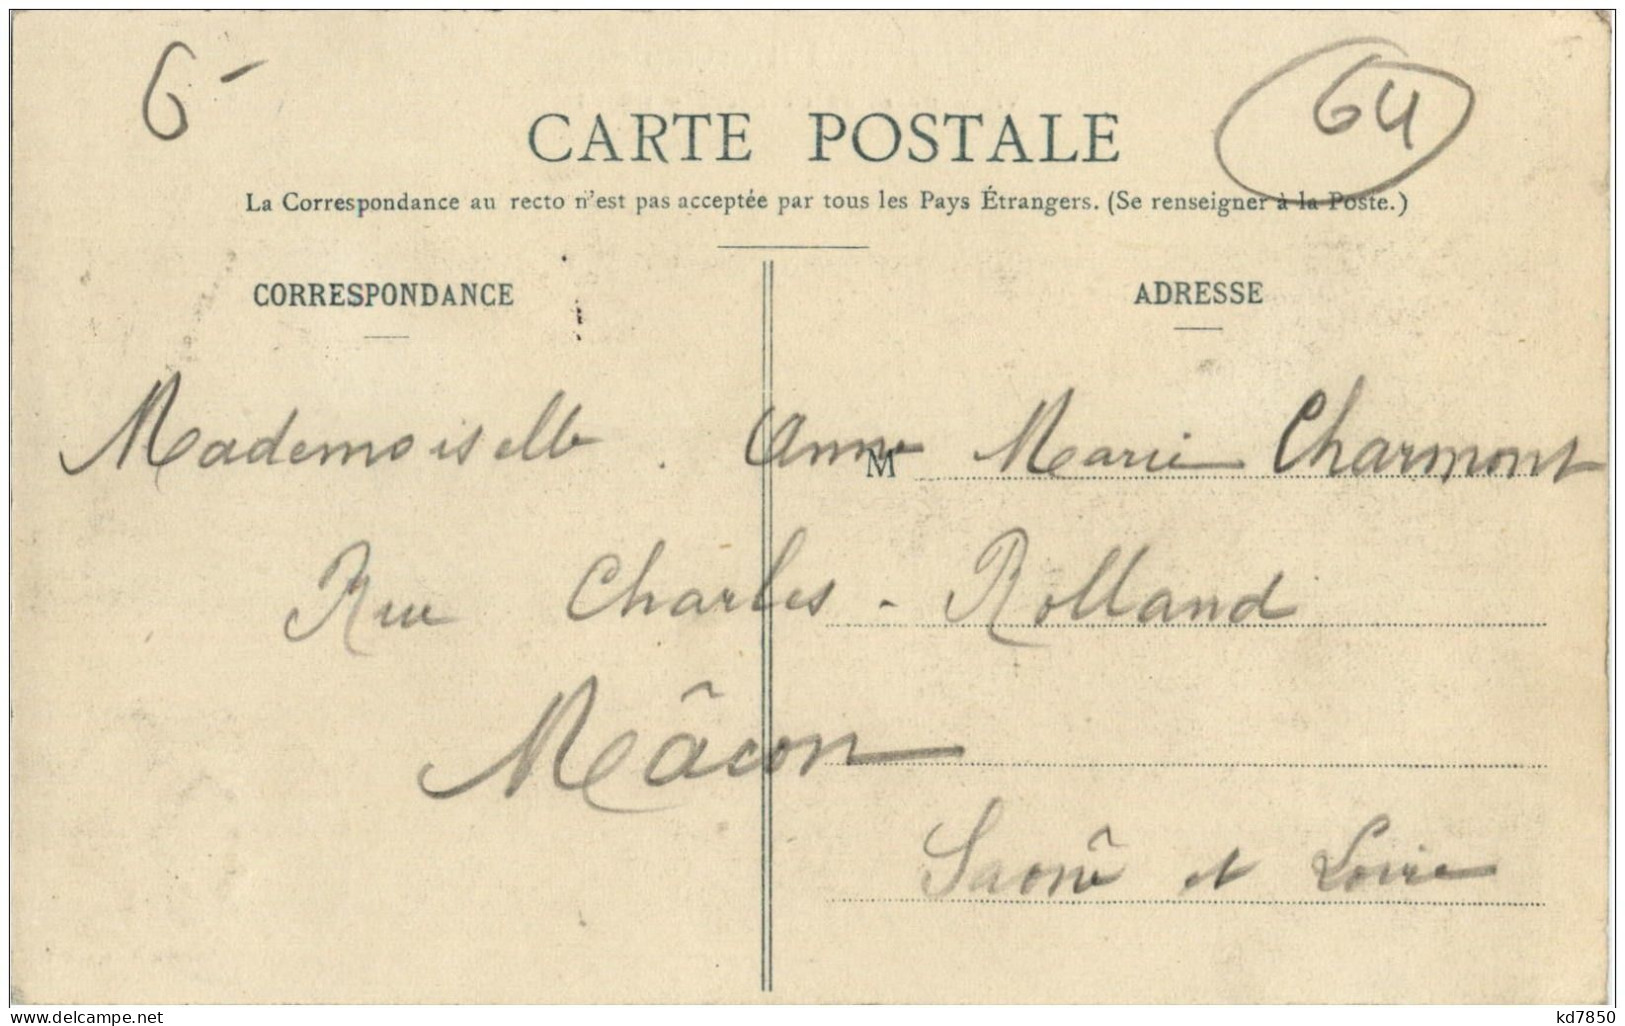 6-
64
CARTE POSTALE
La Correspondance au recto n'est pas acceptée par tous les Pays Étrangers. (Se renseigner à la Poste.)
CORRESPONDANCE
ADRESSE
Mademoiselle. Anne Marie Charmont
M
Rue Charles - Rolland
Mâcon
Saône et Loire
delcampe.net
kd7850